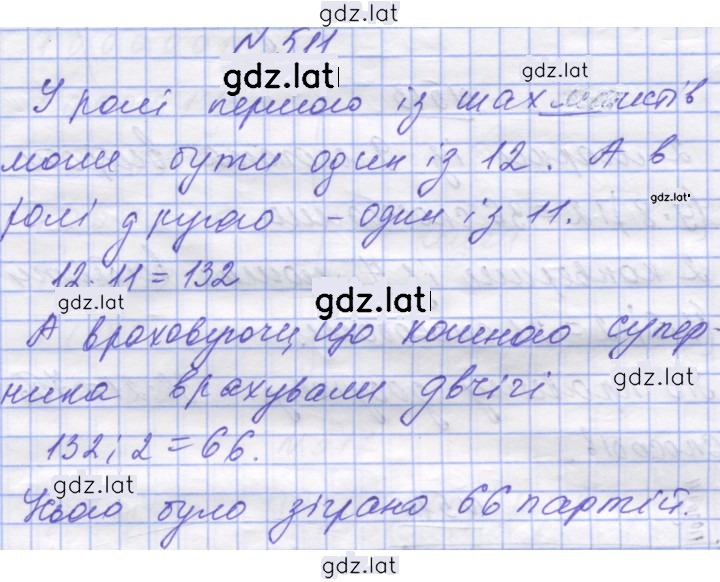 gdz.lat
N 511
gdz.lat
gdz.lat
У ролі першого із шахматистів
може бути один із 12. А в
gdz.lat
ролі другого - один із 11.
12 · 11 = 132
gdz.lat
gdz.lat
А враховуючи, що кожного супер-
gdz.lat
ника врахували двічі
132 : 2 = 66.
gdz.lat
gdz.lat
Усього було зіграно 66 партій.
gdz.lat